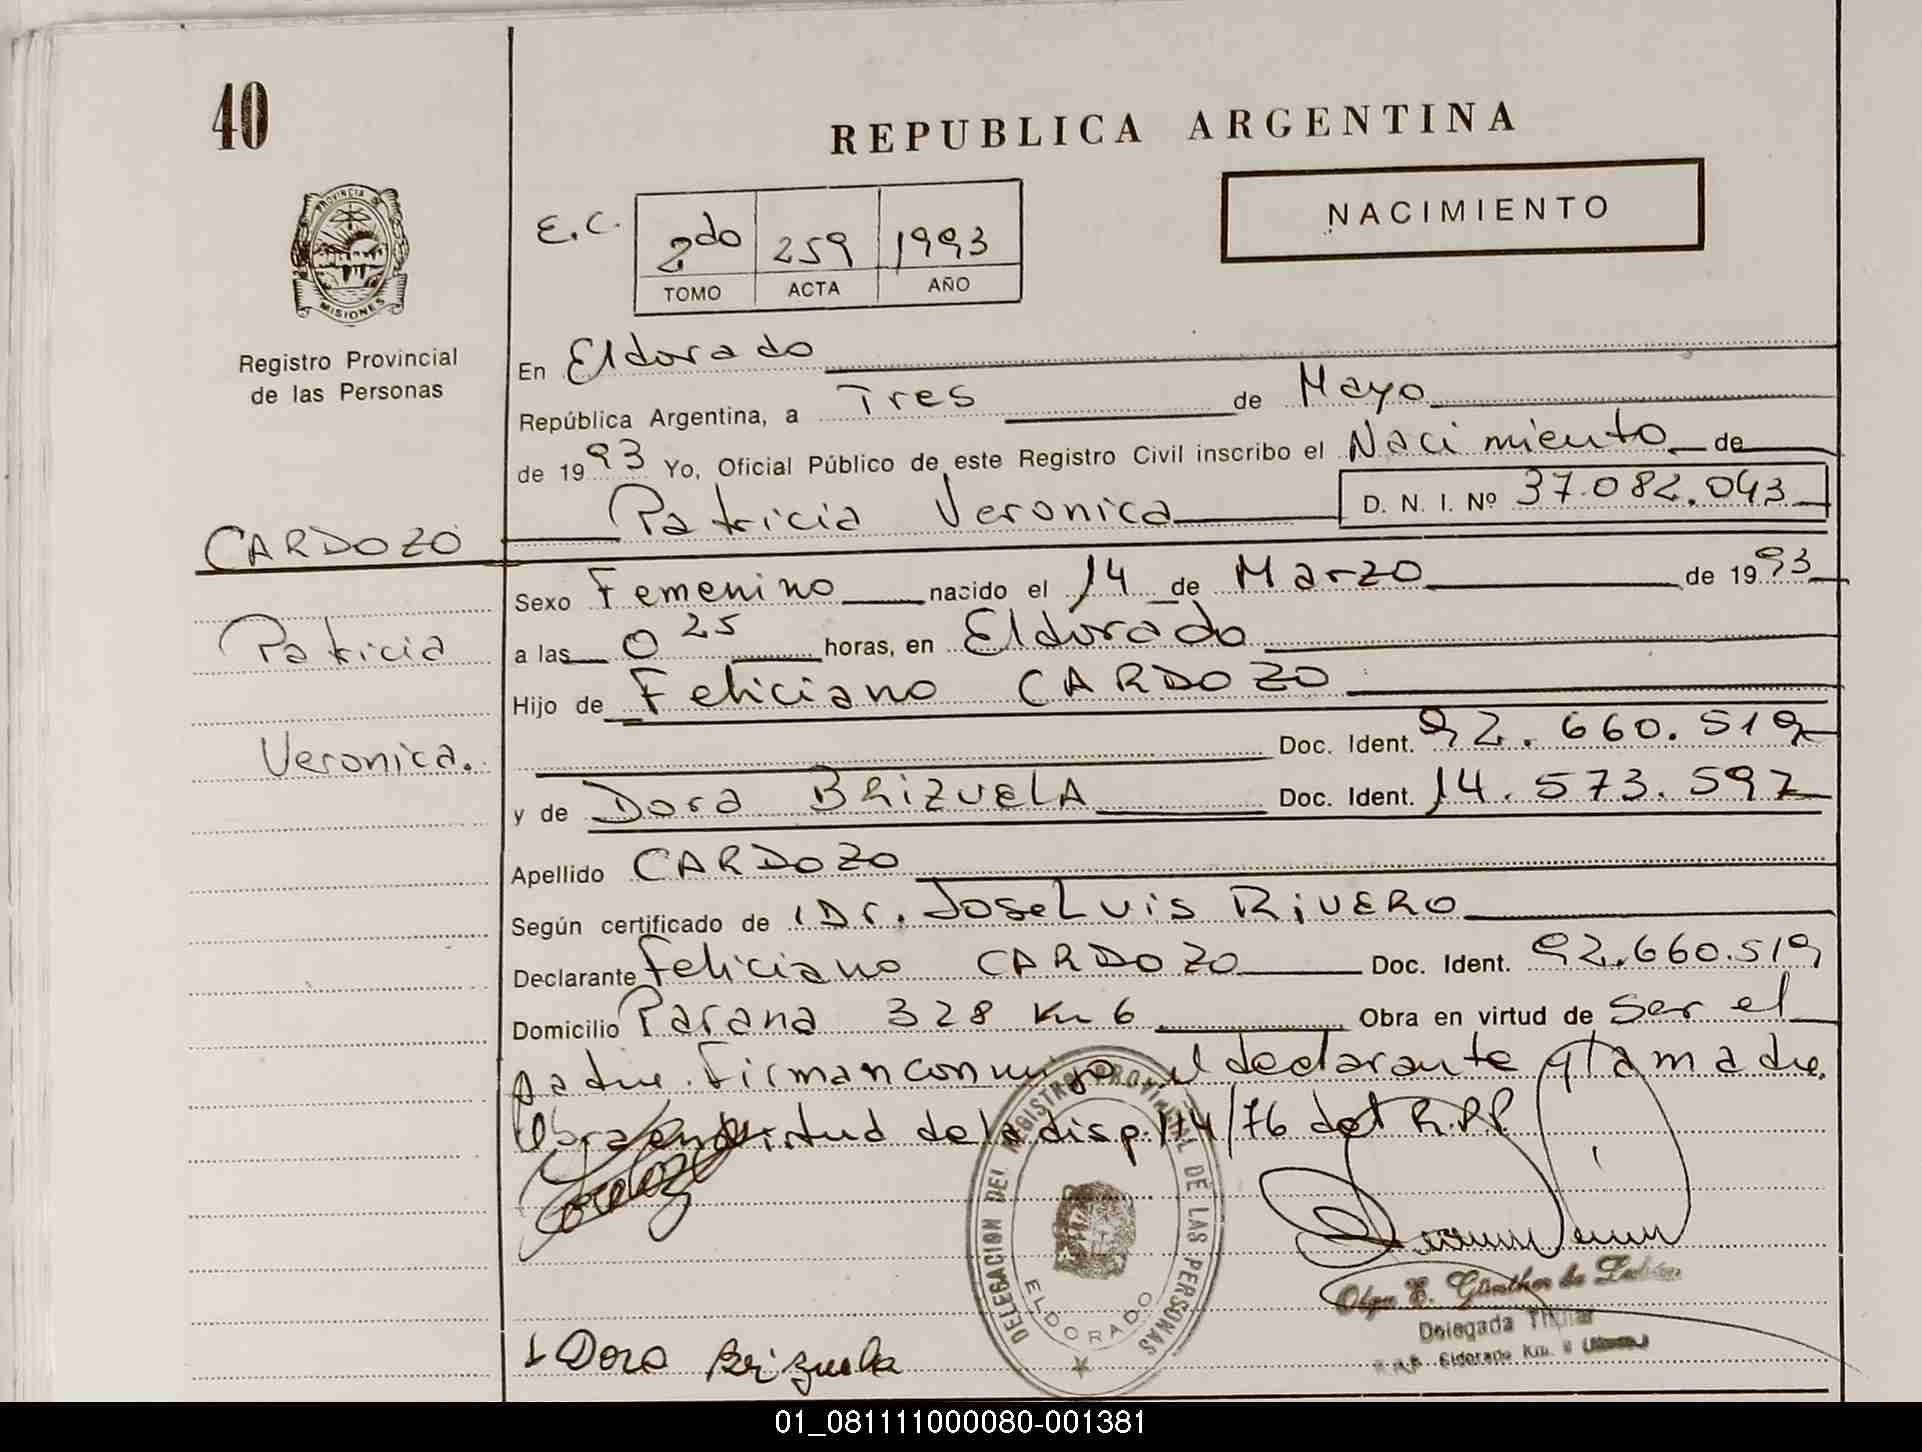 40
REPUBLICA ARGENTINA
NACIMIENTO
PROVINCIA DE
MISIONES
Registro Provincial
de las Personas
E.C.
2do 259 1993
TOMO ACTA AÑO
En Eldorado
República Argentina, a Tres de Mayo
de 1993 Yo, Oficial Público de este Registro Civil inscribo el Nacimiento de
Patricia Veronica D. N. I. Nº 37.082.043
CARDOZO
Patricia
Veronica.
Sexo Femenino nacido el 14 de Marzo de 1993
a las 0 25 horas, en Eldorado
Hijo de Feliciano CARDOZO
Doc. Ident. 92.660.519
y de Dora BRIZUELA Doc. Ident. 14.573.597
Apellido CARDOZO
Según certificado de Dr. Jose Luis RIVERO
Declarante Feliciano CARDOZO Doc. Ident. 92.660.519
Domicilio Parana 328 Km 6 Obra en virtud de ser el
padre. Firman conmigo el declarante y la madre.
Obra en virtud de la disp. 114/76 del R.P.P.
DELEGACION DEL REGISTRO PROVINCIAL DE LAS PERSONAS
ELDORADO
Olga E. Günther de
Delegada Titular
Eldorado Km.
Dora Brizuela
01_081111000080-001381